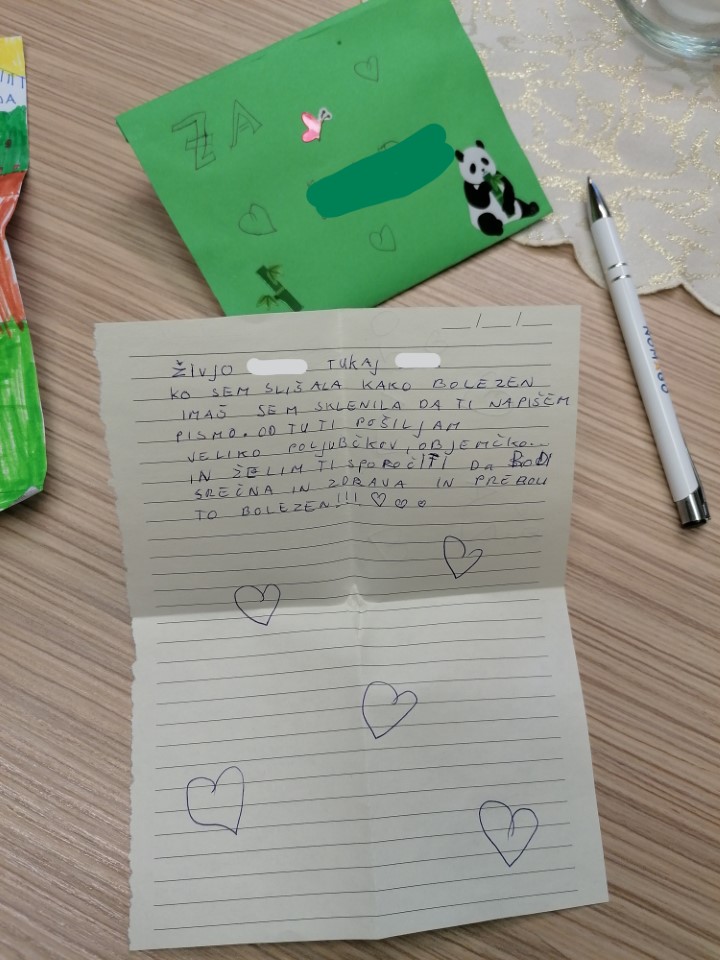 ZA
ŽIVJO TUKAJ .
KO SEM SLIŠALA KAKO BOLEZEN
IMAŠ SEM SKLENILA DA TI NAPIŠEM
PISMO. OD TU TI POŠILJAM
VELIKO POLJUBČKOV, OBJEMČKO...
IN ŽELIM TI SPOROČITI DA BODI
SREČNA IN ZDRAVA IN PREBOLI
TO BOLEZEN!!! ♡ ♡ ♡
__/__/__
DA